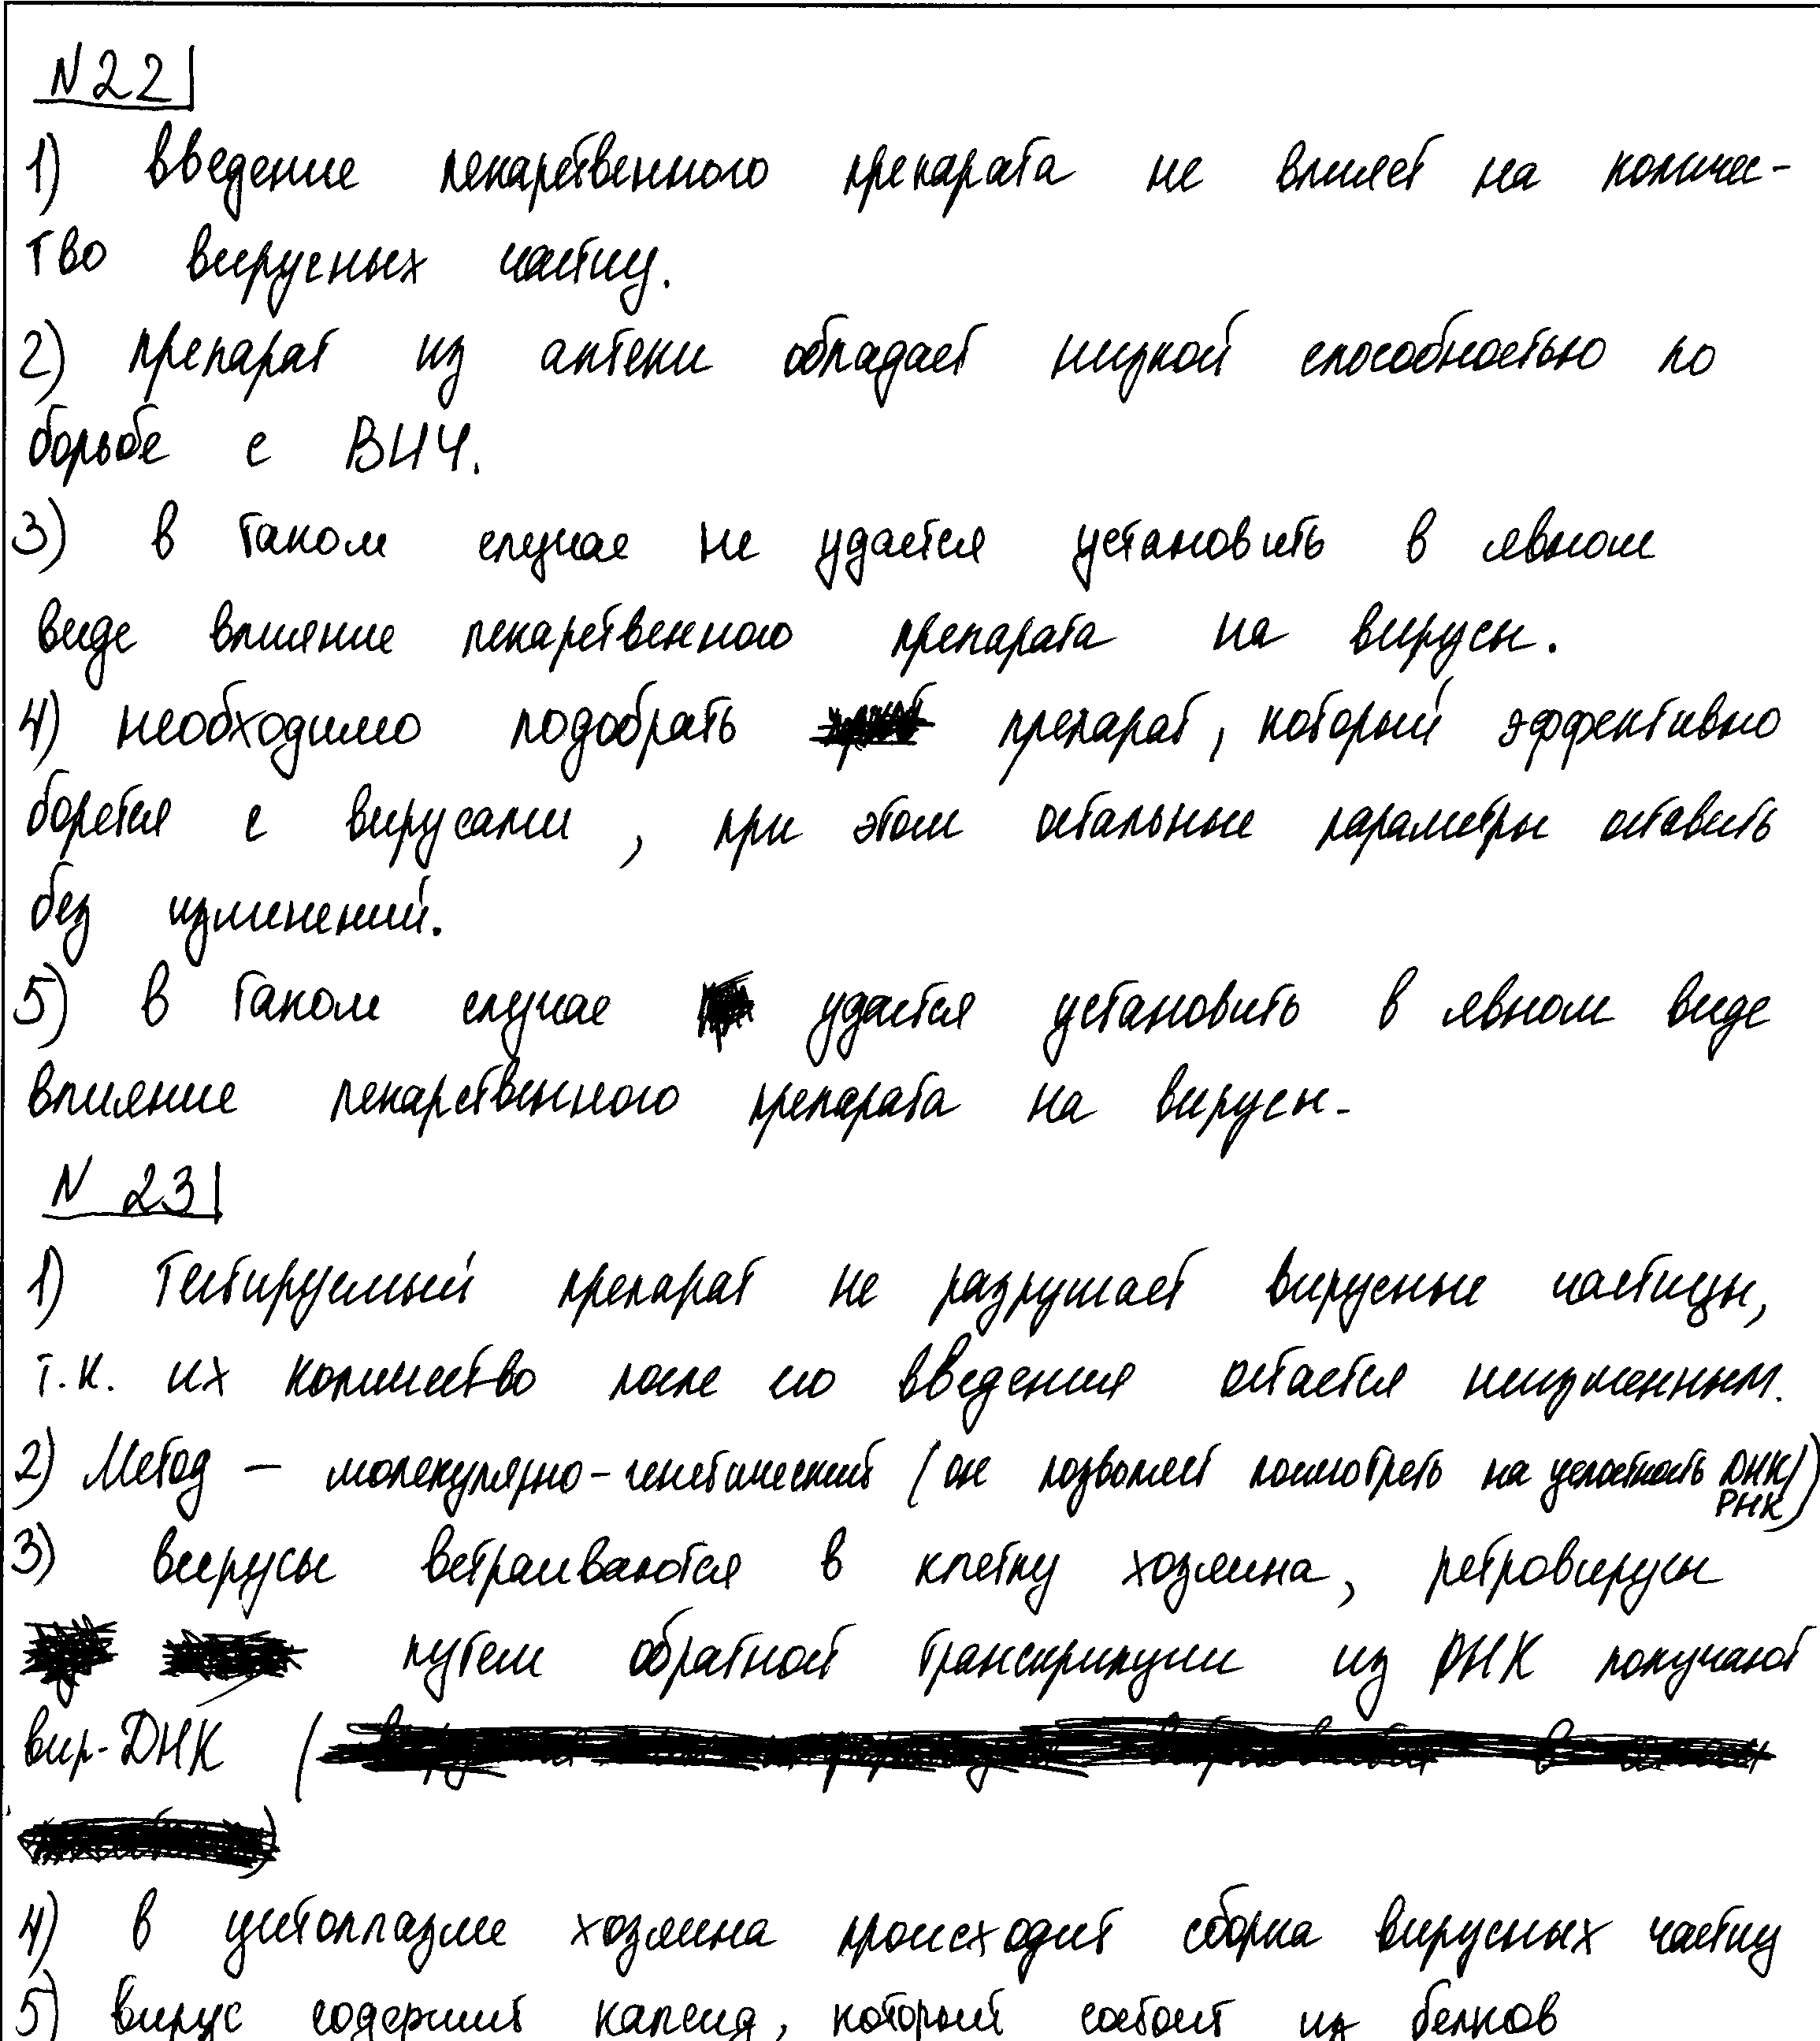 N 22
1) введение лекарственного препарата не влияет на количес-
тво вирусных частиц.
2) препарат из аптеки обладает низкой способностью по
борьбе с ВИЧ.
3) в таком случае не удается установить в явном
виде влияние лекарственного препарата на вирусы.
4) необходимо подобрать препарат, который эффективно
борется с вирусами, при этом остальные параметры оставить
без изменений.
5) в таком случае удается установить в явном виде
влияние лекарственного препарата на вирусы.
N 23
1) Тестируемый препарат не разрушает вирусные частицы,
т.к. их количество после его введения остается неизменным.
2) Метод – молекулярно-генетический (он позволяет посмотреть на целостность ДНК/
РНК)
3) вирусы встраиваются в клетку хозяина, ретровирусы
путем обратной транскрипции из РНК получают
вир-ДНК (
4) в цитоплазме хозяина происходит сборка вирусных частиц
5) вирус содержит капсид, который состоит из белков